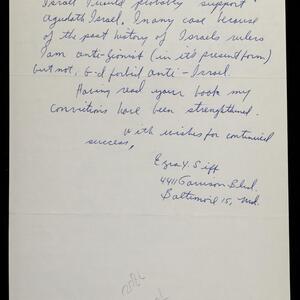 Israel I would probably support
Agudath Israel. In any case because
of the past history of Israels rulers
I am anti-Zionist (in its present form)
but not, G-d forbid anti-Israel.
Having read your book my
convictions have been strengthened.
With wishes for continued
success,
Ezra Y. Siff
4411 Garrison Blvd.
Baltimore 15, Md.